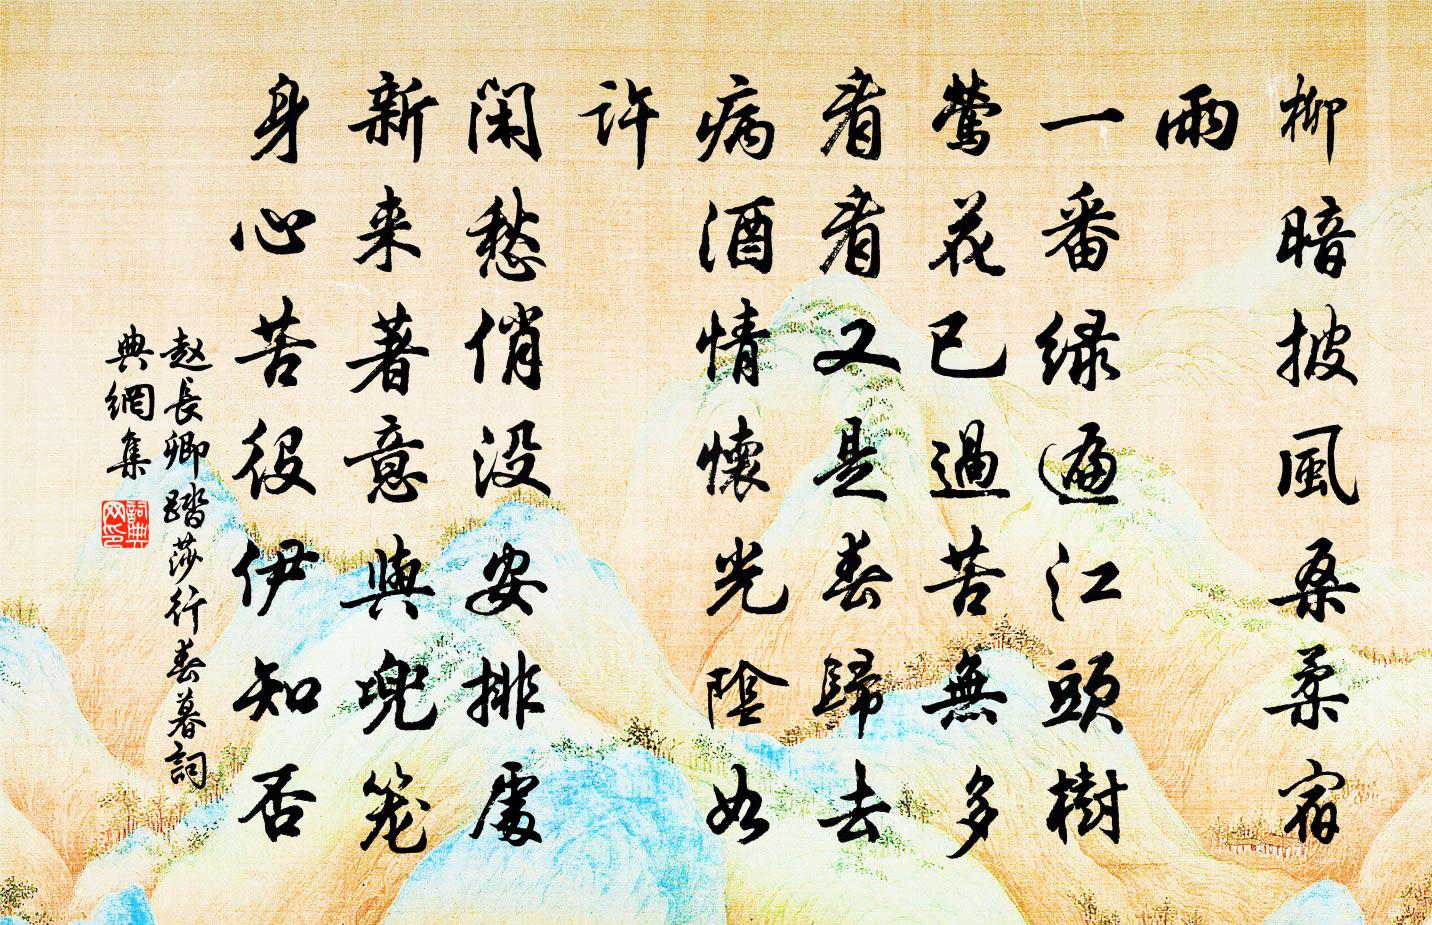 柳暗披風桑柔宿
雨
一番绿遍江頭樹
鶯花已過苦無多
看看又是春歸去
病酒情懷光陰如
許
閑愁俏没安排處
新来著意與兜笼
身心苦役伊知否
赵長卿踏莎行春暮詞
典網集
詞典网印